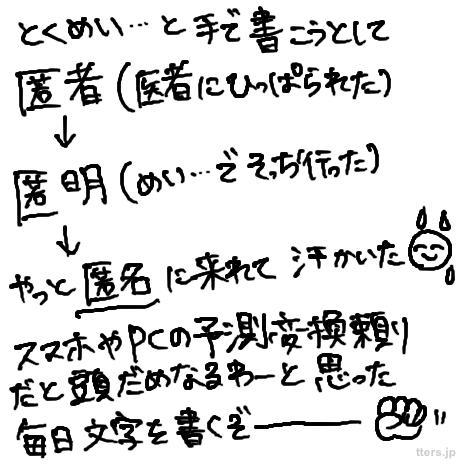 とくめい…と手で書こうとして
匿者(医者にひっぱられた)
↓
匿明(めい…でそっち行った)
↓
やっと匿名に来れて 汗かいた
スマホやPCの予測変換頼り
だと頭だめなるわーと思った
毎日文字を書くぞー
tters.jp